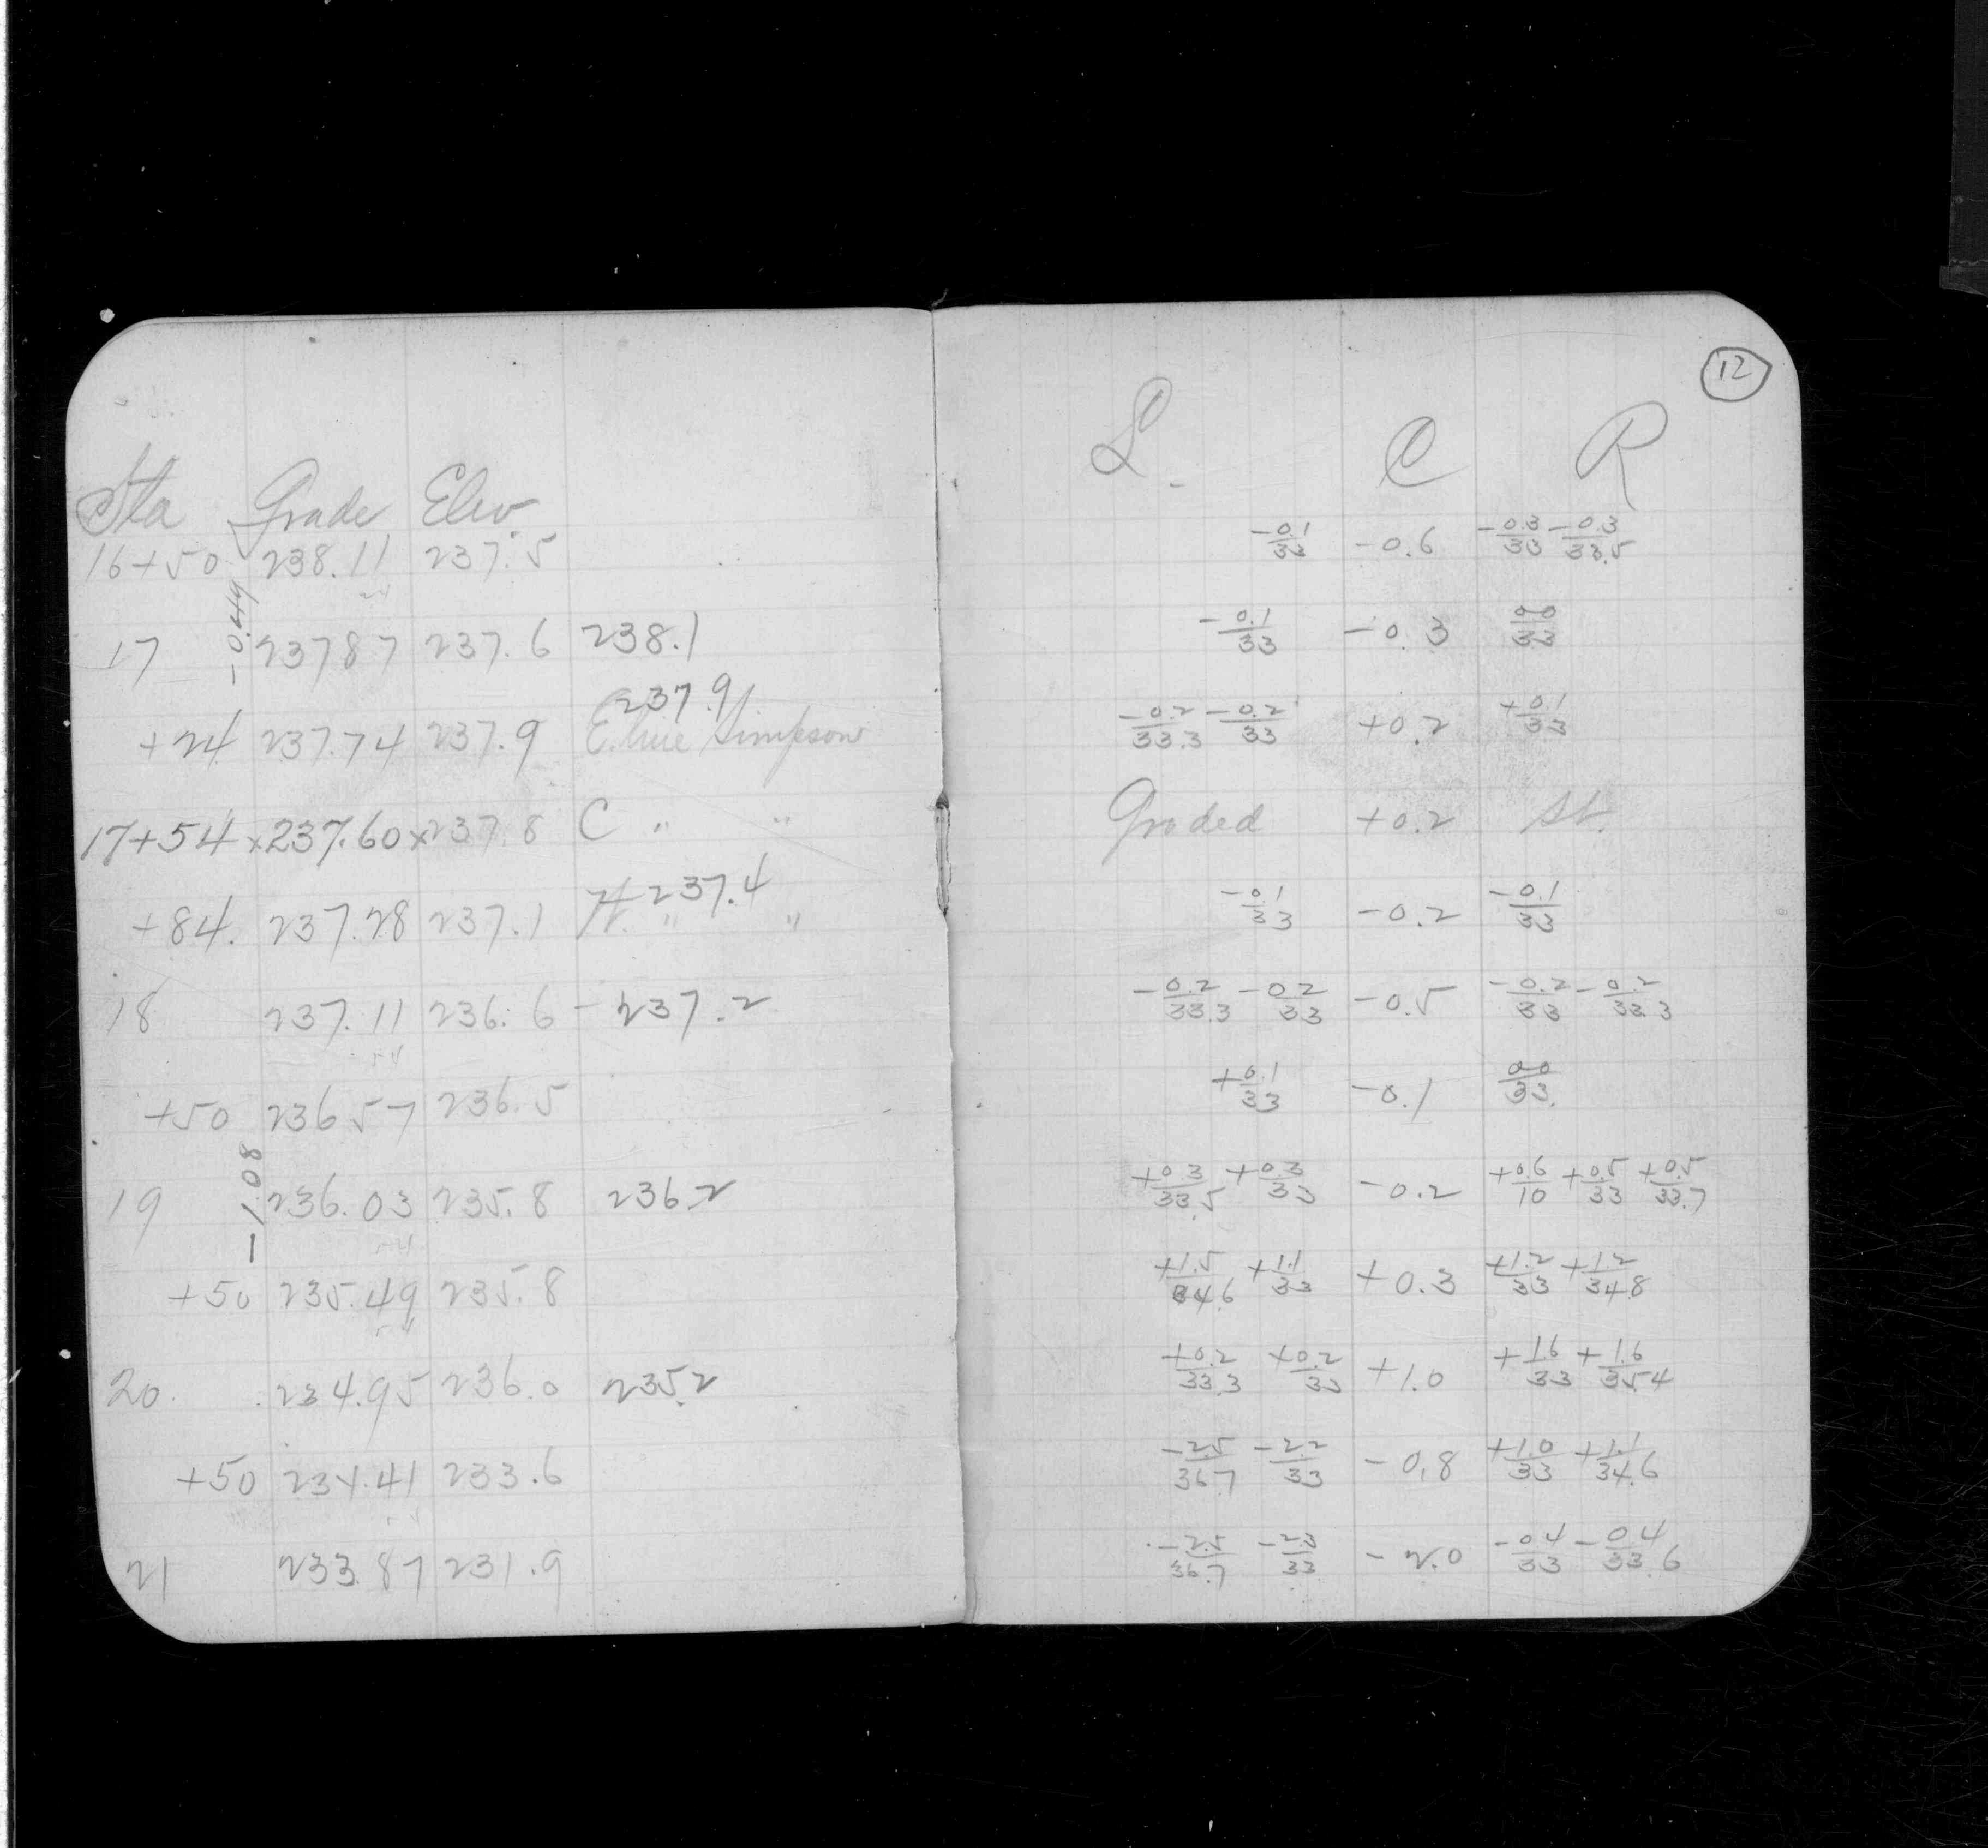 12
Sta Grade Elev. L. C R
16+50 238.11 237.5 -0.1/33 -0.6 -0.3/33 -0.3/33.5
-0.49
17 23787 237.6 238.1 -0.1/33 -0.3 0.0/33
237.9
+24 237.74 237.9 E. line Simpson -0.2/33.3 -0.2/33 +0.2 +0.1/33
17+54 x 237.60 x 237.8 C " " Graded +0.2 St.
237.4
+84. 237.28 237.1 W. " " -0.1/33 -0.2 -0.1/33
18 237.11 236.6 - 237.2 -0.2/33.3 -0.2/33 -0.5 -0.2/33 -0.2/33.3
+50 236 57 236.5 +0.1/33 -0.1 0.0/33.
-1.08
19 236.03 235.8 236.2 +0.3/33.5 +0.3/33 -0.2 +0.6/10 +0.5/33 +0.5/33.7
+50 235.49 235.8 +1.5/34.6 +1.1/33 +0.3 +1.2/33 +1.2/34.8
20. 234.95 236.0 235.2 +0.2/33.3 +0.2/33 +1.0 +1.6/33 +1.6/35.4
+50 234.41 233.6 -2.5/36.7 -2.2/33 -0.8 +1.0/33 +1.1/34.6
21 233.87 231.9 -2.5/36.7 -2.3/33 -2.0 -0.4/33 -0.4/33.6